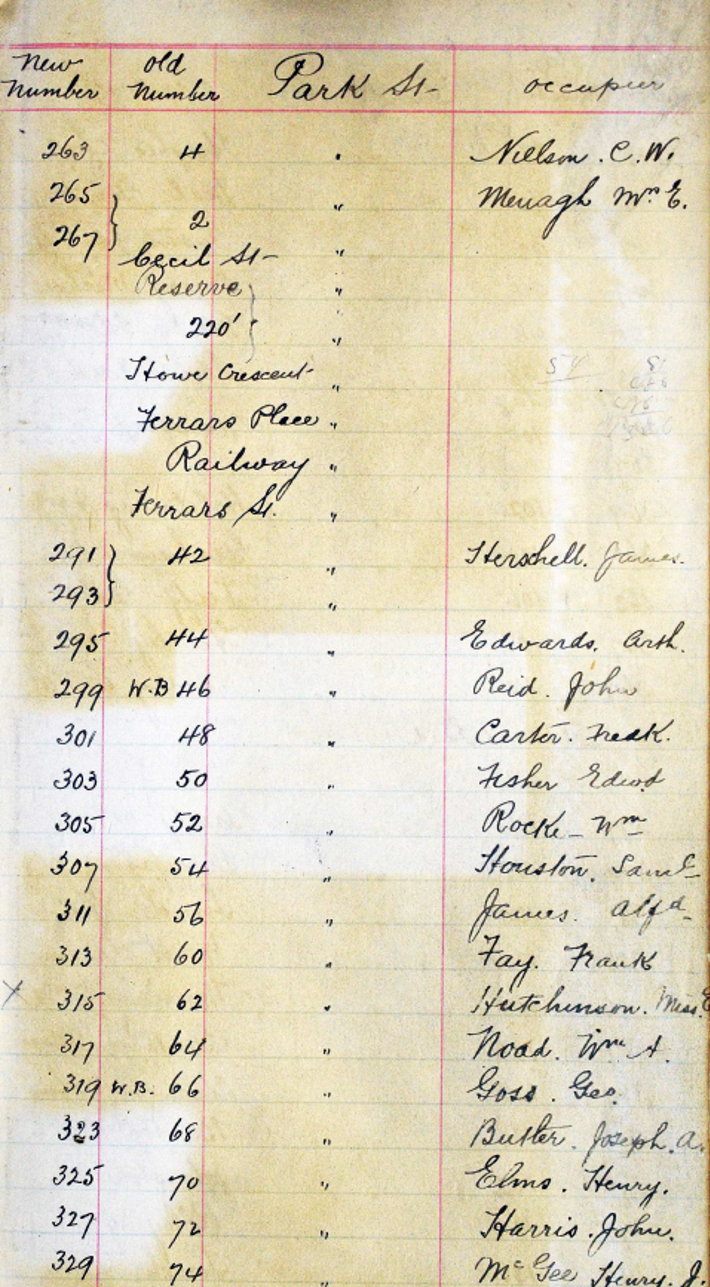 New Number old Number Park St- occupier
263 4 " Nielson. C. W.
265 Menagh Mrs E.
267 } 2 "
Cecil St- "
Reserve "
220' } "
Howe Crescent- "
Ferrars Place "
Railway "
Ferrars St. "
291 } 42 " Herschell. James.
293 "
295 44 " Edwards. Arth.
299 W.B 46 " Reid. John
301 48 " Carter. Fredk.
303 50 " Fisher Edwd
305 52 " Rocke- Wm
307 54 " Houston. Saml-
311 56 " James. Alfd-
313 60 " Fay. Frank
X 315 62 " Hutchinson. Miss.
317 64 " Noad. Wm A.
319 W.B. 66 " Goss. Geo.
323 68 " Butler. Joseph. A.
325 70 " Elms. Henry.
327 72 " Harris. John.
329 74 " McGee Henry. J.